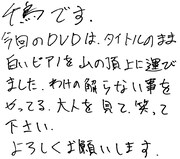 千鳥です。
今回のDVDは、タイトルのまま
白いピアノを山の頂上に運び
ました。わけの解らない事を
やってる、大人を見て、笑って
下さい。
よろしくお願いします。